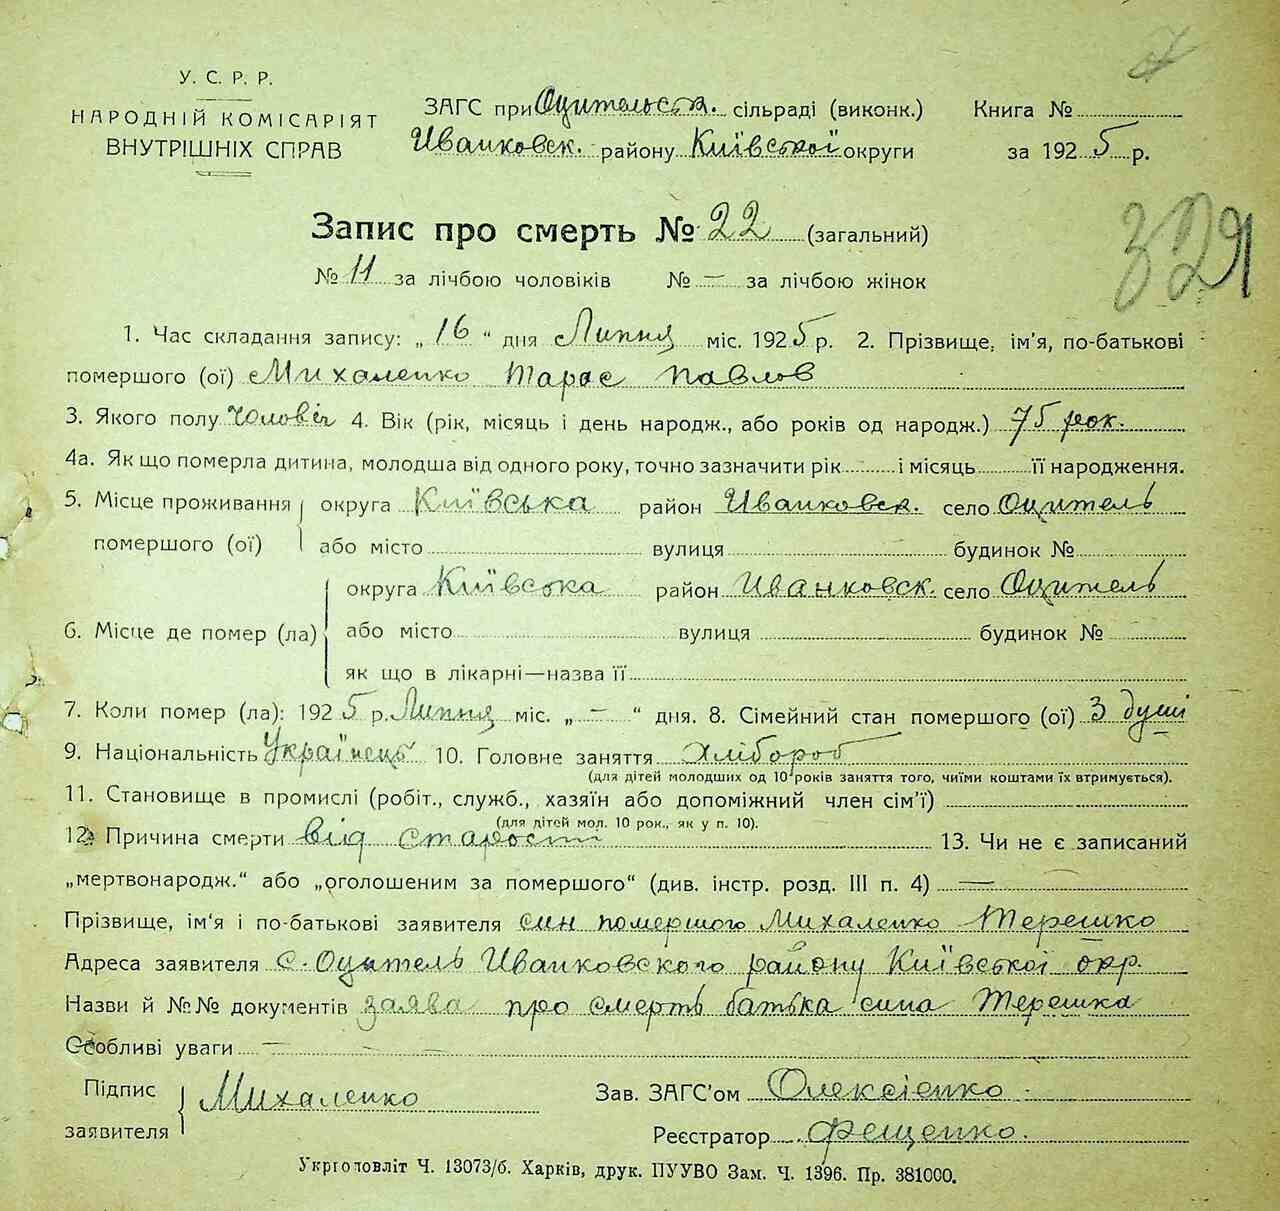 У. С. Р. Р.
НАРОДНІЙ КОМІСАРІЯТ
ВНУТРІШНІХ СПРАВ
ЗАГС при Оцительск. сільраді (виконк.)
Иванковск. району Київської округи
Книга №
за 1925 р.
Запис про смерть № 22 (загальний)
329
№ 11 за лічбою чоловіків № — за лічбою жінок
1. Час складання запису: „16“ дня Липня міс. 1925 р. 2. Прізвище, ім'я, по-батькові
помершого (ої) Михаленко Тарас Павлов
3. Якого полу чоловіч 4. Вік (рік, місяць і день народж., або років од народж.) 75 рок.
4а. Як що померла дитина, молодша від одного року, точно зазначити рік і місяць її народження.
5. Місце проживання округа Київська район Иванковск. село Оцитель
помершого (ої) або місто вулиця будинок №
округа Київська район Иванковск. село Оцитель
6. Місце де помер (ла) або місто вулиця будинок №
як що в лікарні—назва її
7. Коли помер (ла): 1925 р. Липня міс. „ — “ дня. 8. Сімейний стан помершого (ої) 3 душі
9. Національність Українець 10. Головне заняття Хлібороб
(для дітей молодших од 10 років заняття того, чиїми коштами їх втримується).
11. Становище в промислі (робіт., служб., хазяїн або допоміжний член сім'ї)
(для дітей мол. 10 рок., як у п. 10).
12. Причина смерти від старости 13. Чи не є записаний
„мертвонародж.“ або „оголошеним за помершого“ (див. інстр. розд. III п. 4) —
Прізвище, ім'я і по-батькові заявителя син помершого Михаленко Терешко
Адреса заявителя с. Оцитель Иванковского району Київської окр.
Назви й №№ документів заява про смерть батька сина Терешка
Особливі уваги —
Підпис
заявителя
Михаленко
Зав. ЗАГС'ом Олексієнко
Реєстратор Фещенко.
Укрголовліт Ч. 13073/б. Харків, друк. ПУУВО Зам. Ч. 1396. Пр. 381000.